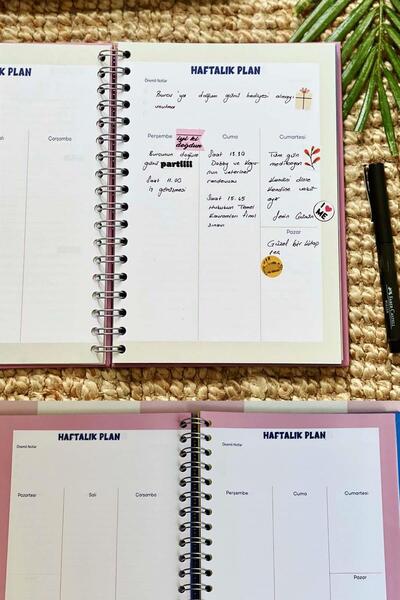 K PLAN
Çarşamba
HAFTALIK PLAN
Önemli Notlar
Burcu'ya doğum günü hediyesi almayı
unutma
Perşembe
iyi ki
doğdun
Burcunun doğum
günü partiiii
Saat 11.00
iş görüşmesi
Cuma
Saat 13.30
Dobby ve
nun veteriner
randevusu
Saat 15.45
Hukukun Temel
Kavramları final
sınavı
Cumartesi
Tüm gün
meditasyon
Kendini dinle
Kendine vakit
ayır
♥ ME
Pazar
Güzel bir kitap
HAFTALIK PLAN
Önemli Notlar
Pazartesi
Salı
Çarşamba
HAFTALIK PLAN
Önemli Notlar
Perşembe
Cuma
Cumartesi
Pazar